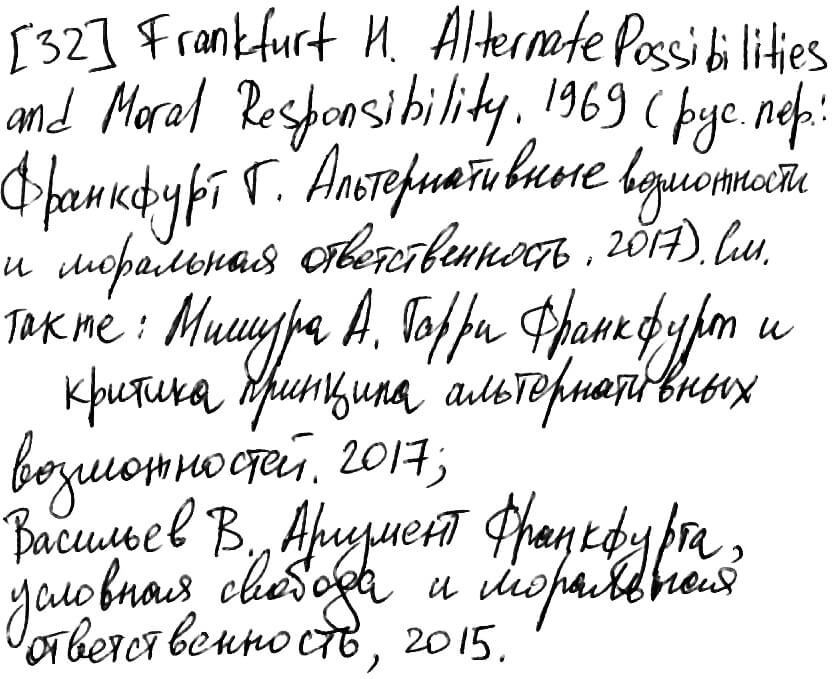 [32] Frankfurt H. Alternate Possibilities
and Moral Responsibility. 1969 (рус. пер.:
Франкфурт Г. Альтернативные возможности
и моральная ответственность, 2017). См.
также: Мишура А. Гарри Франкфурт и
критика принципа альтернативных
возможностей. 2017;
Васильев В. Аргумент Франкфурта,
условная свобода и моральная
ответственность, 2015.